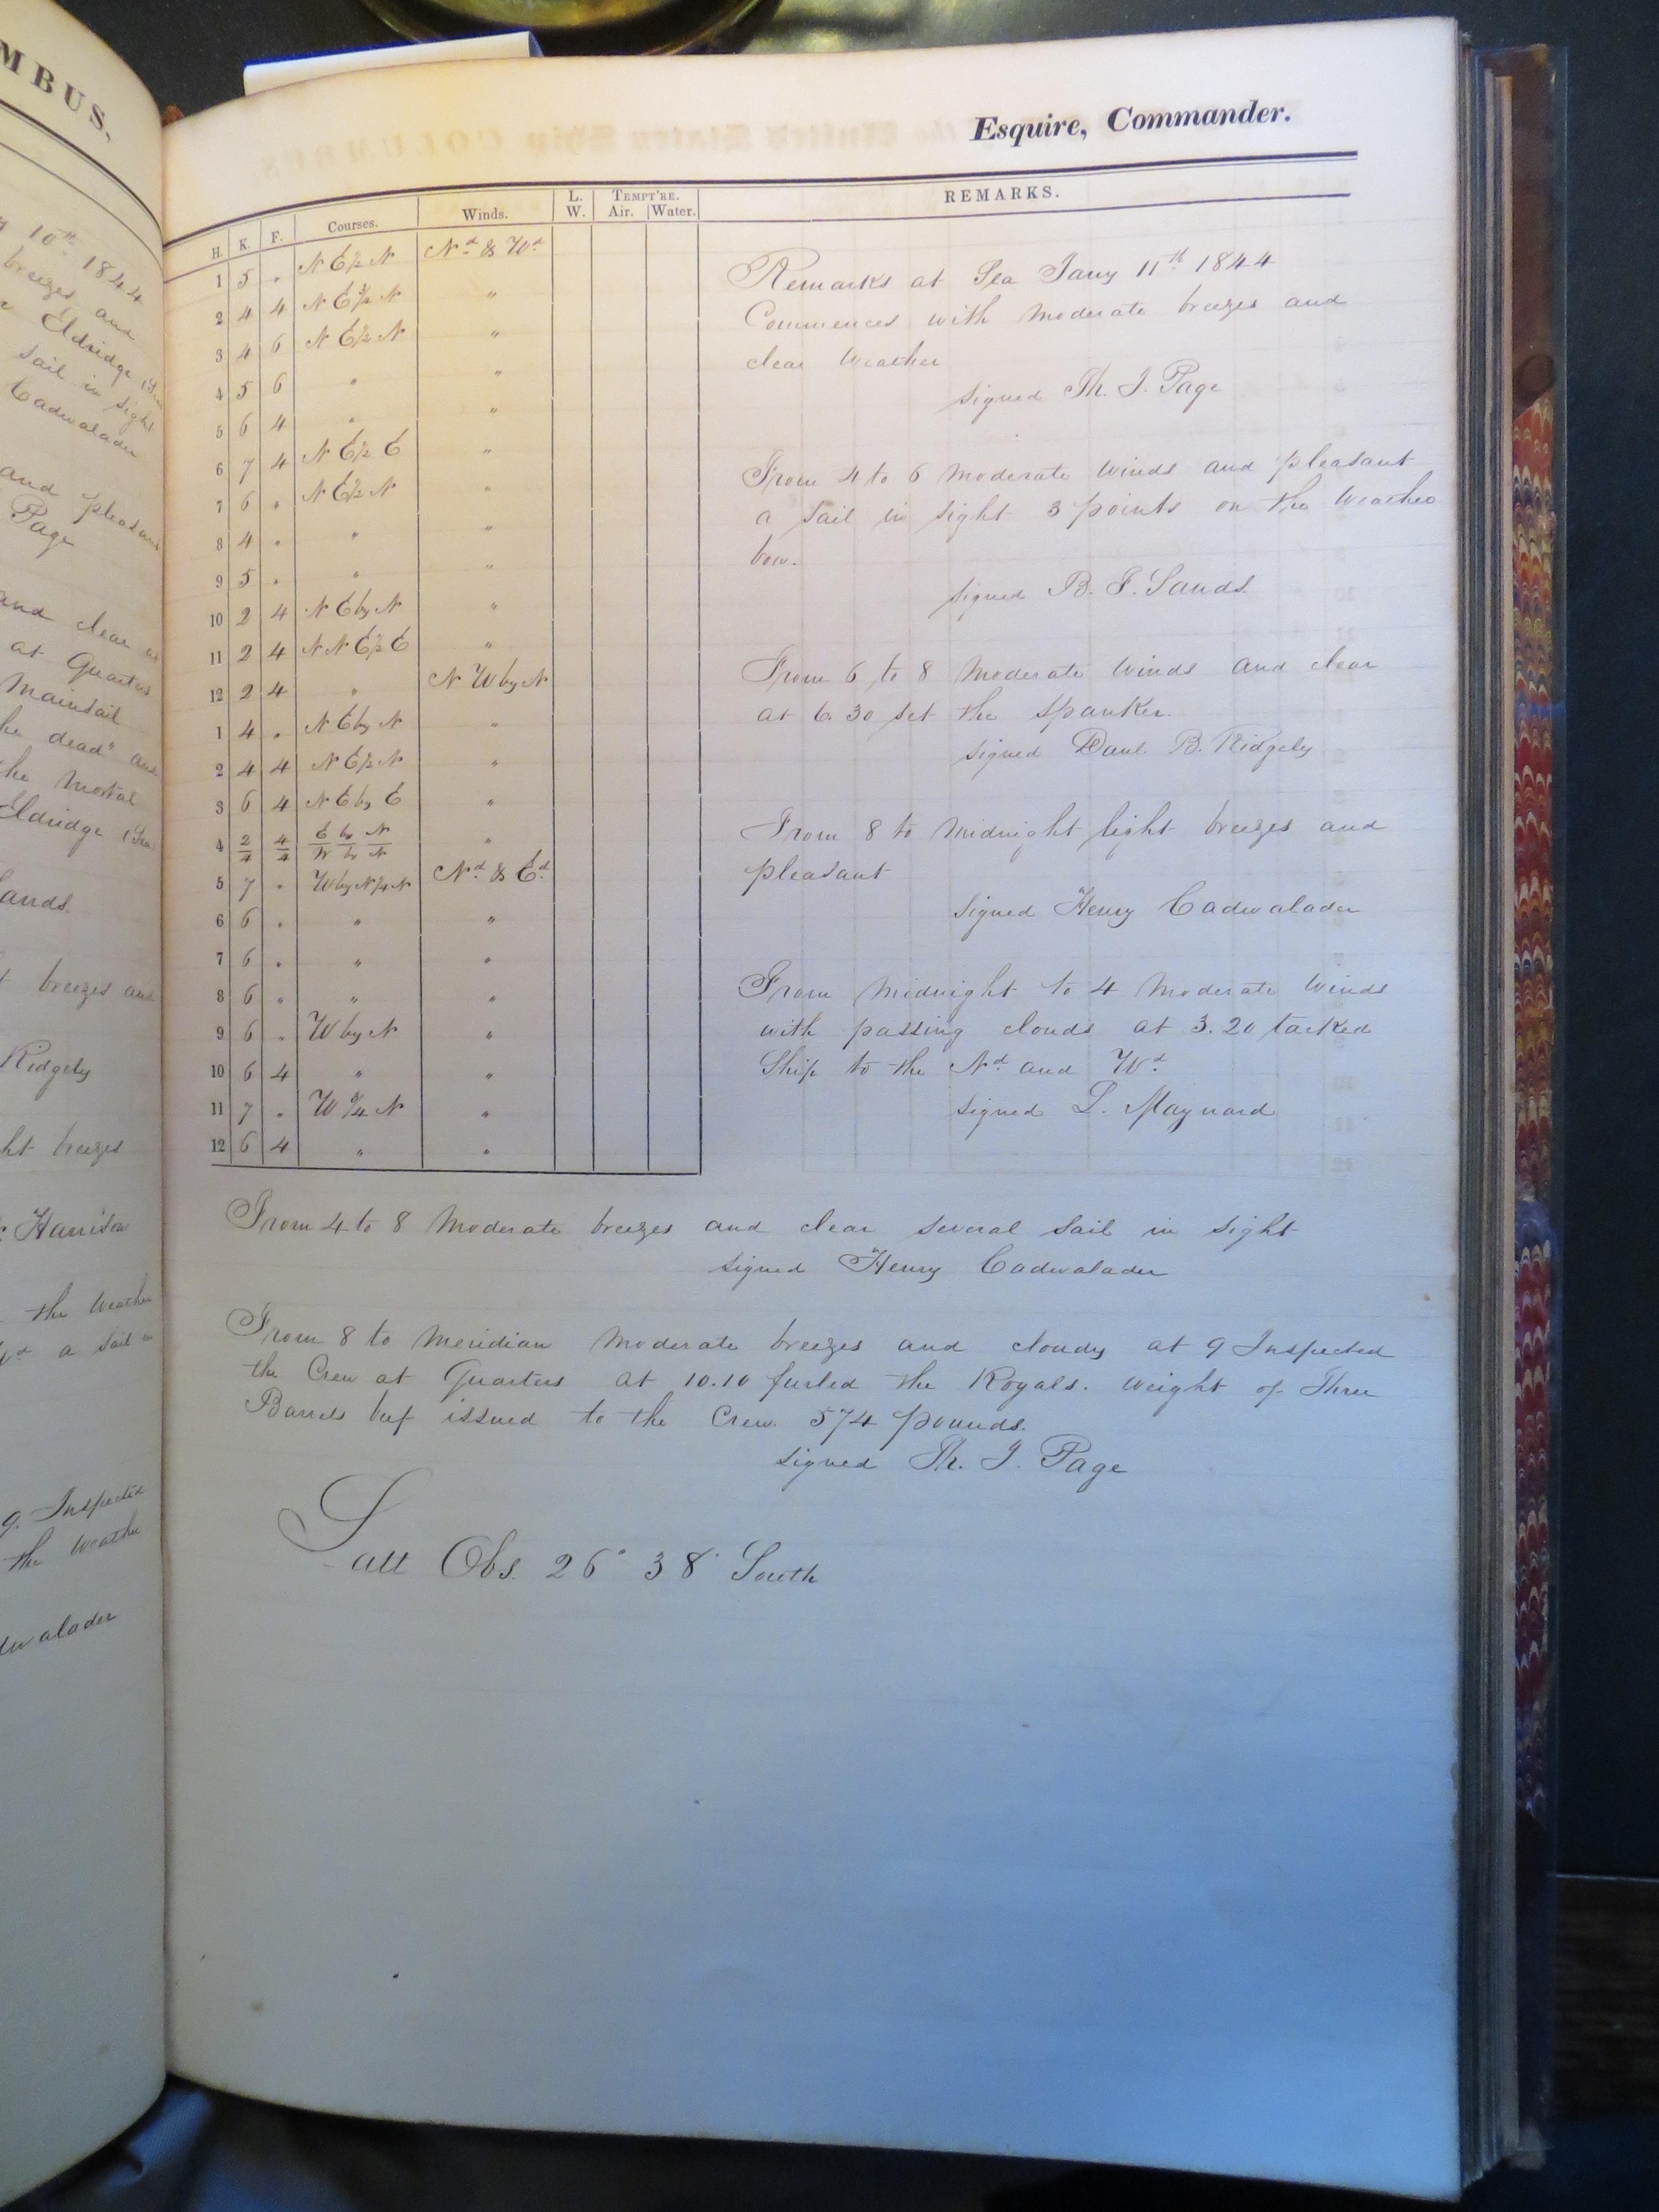 MBUS.
10th 1844
breezes and
Eldridge
Sail in sight
Cadwalader
and pleasant
Page
and clear
at Quarters
Mainsail
he dead" and
the Mortal
Eldridge
ands.
breezes and
Ridgely
ht breezes
Harrison
the Weather
a Sail in
9. Inspected
the Weather
dwalader
Esquire, Commander.
H. K. F. Courses. Winds. L. W. TEMPT'RE. Air. Water. REMARKS.
1 5 " N E½ N Nd & Wd
2 4 4 N E¾ N "
3 4 6 N E½ N "
4 5 6 " "
5 6 4 " "
6 7 4 N E½ E "
7 6 " N E½ N "
8 4 " " "
9 5 " " "
10 2 4 N E by N "
11 2 4 N N E½ E "
12 2 4 " N W by N
1 4 " N E by N "
2 4 4 N E½ N "
3 6 4 N E by E "
4 2/4 4/4 E by N / W by N "
5 7 " W by N ¾ N Nd & Ed
6 6 " " "
7 6 " " "
8 6 " " "
9 6 " W by N "
10 6 4 " "
11 7 " W ¾ N "
12 6 4 " "
Remarks at Sea Jany 11th 1844
Commences with Moderate breezes and
clear Weather
signed Th. J. Page
From 4 to 6 Moderate winds and pleasant
a Sail in sight 3 points on the Weather
bow.
signed B. F. Sands.
From 6 to 8 Moderate Winds and clear
at 6.30 set the Spanker.
signed Danl. B. Ridgely
From 8 to Midnight light breezes and
pleasant
signed Henry Cadwalader
From Midnight to 4 Moderate Winds
with passing clouds at 3.20 tacked
Ship to the Nd and Wd
signed L. Maynard
From 4 to 8 Moderate breezes and clear several Sail in Sight
signed Henry Cadwalader
From 8 to Meridian Moderate breezes and cloudy at 9 Inspected
the Crew at Quarters at 10.10 furled the Royals. Weight of Three
Barrels beef issued to the Crew. 574 pounds.
signed Th. J. Page
Latt Obs. 26° 38' South